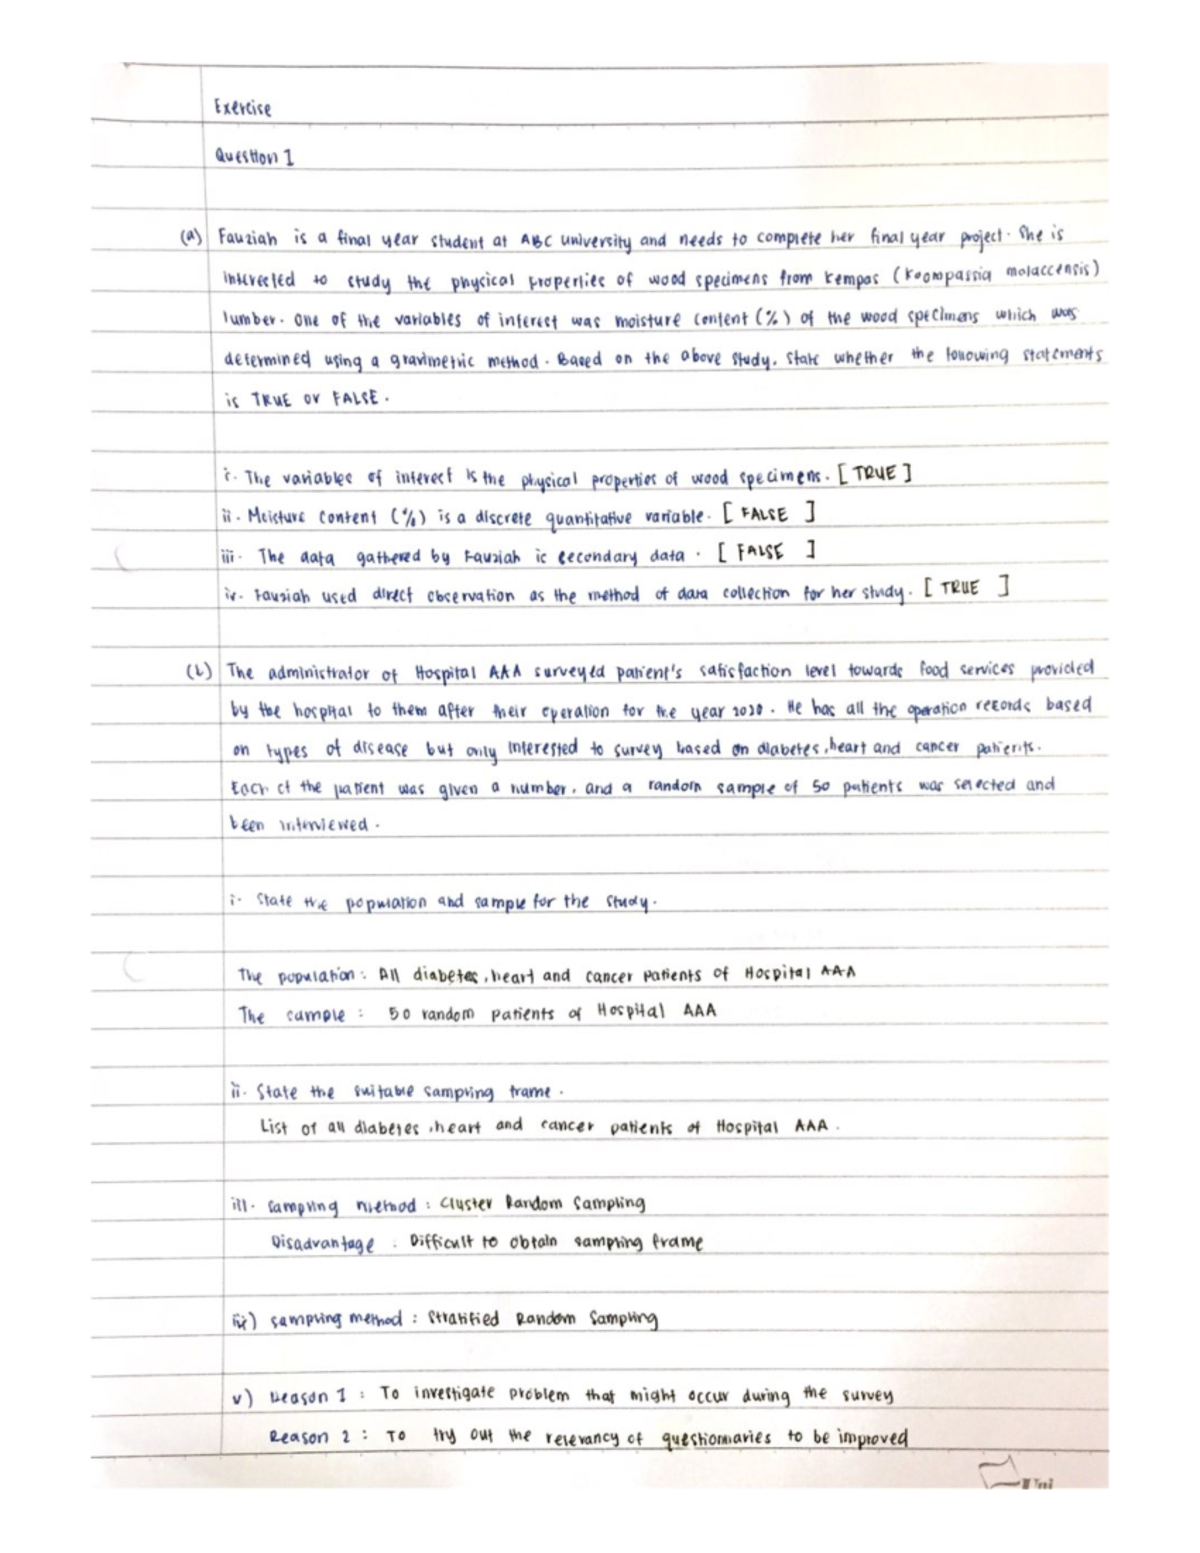 Exercise
Question 1
(a) Fauziah is a final year student at ABC university and needs to complete her final year project. She is
interested to study the physical properties of wood specimens from kempas (Koompassia malaccensis)
lumber. One of the variables of interest was moisture content (%) of the wood specimens which was
determined using a gravimetric method. Based on the above study, state whether the following statements
is TRUE or FALSE.
i. The variables of interest is the physical properties of wood specimens. [ TRUE ]
ii. Moisture content (%) is a discrete quantitative variable. [ FALSE ]
iii. The data gathered by Fauziah is secondary data. [ FALSE ]
iv. Fauziah used direct observation as the method of data collection for her study. [ TRUE ]
(b) The administrator of Hospital AAA surveyed patient's satisfaction level towards food services provided
by the hospital to them after their operation for the year 2020. He has all the operation records based
on types of disease but only interested to survey based on diabetes, heart and cancer patients.
Each of the patient was given a number, and a random sample of 50 patients was selected and
been interviewed.
i. State the population and sample for the study.
The population : All diabetes, heart and cancer patients of Hospital AAA
The sample : 50 random patients of Hospital AAA
ii. State the suitable sampling frame.
List of all diabetes, heart and cancer patients of Hospital AAA.
iii. Sampling method : Cluster Random Sampling
Disadvantage : Difficult to obtain sampling frame
iv) sampling method : Stratified Random Sampling
v) Reason 1 : To investigate problem that might occur during the survey
Reason 2 : To try out the relevancy of questionnaries to be improved